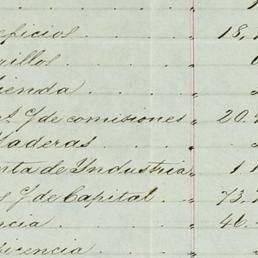 eficios . . . 18,
quillos . . . "
ienda . . . "
s y/ de comisiones " 20.
aderas . . . "
nta de Industria " 1.
s y/ de Capital . " 73.
ncia . . . " 46.
eficencia . . . "